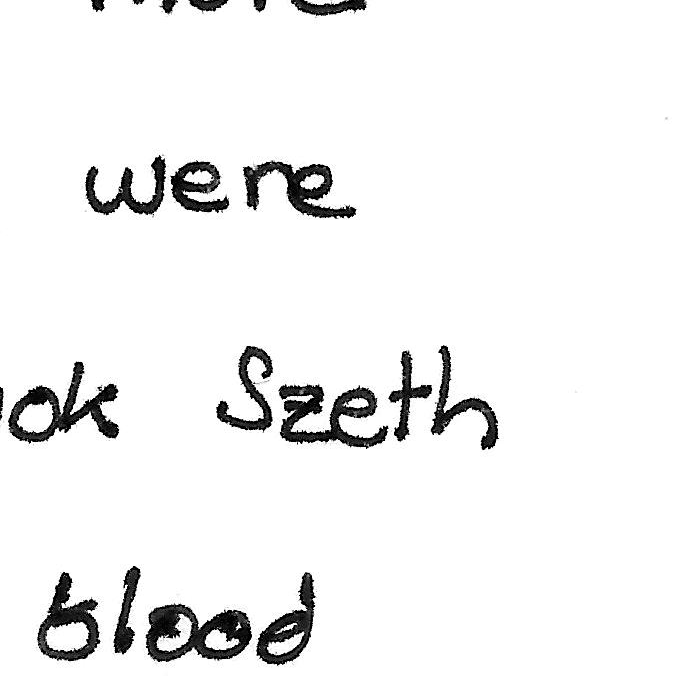 were
Szeth
blood